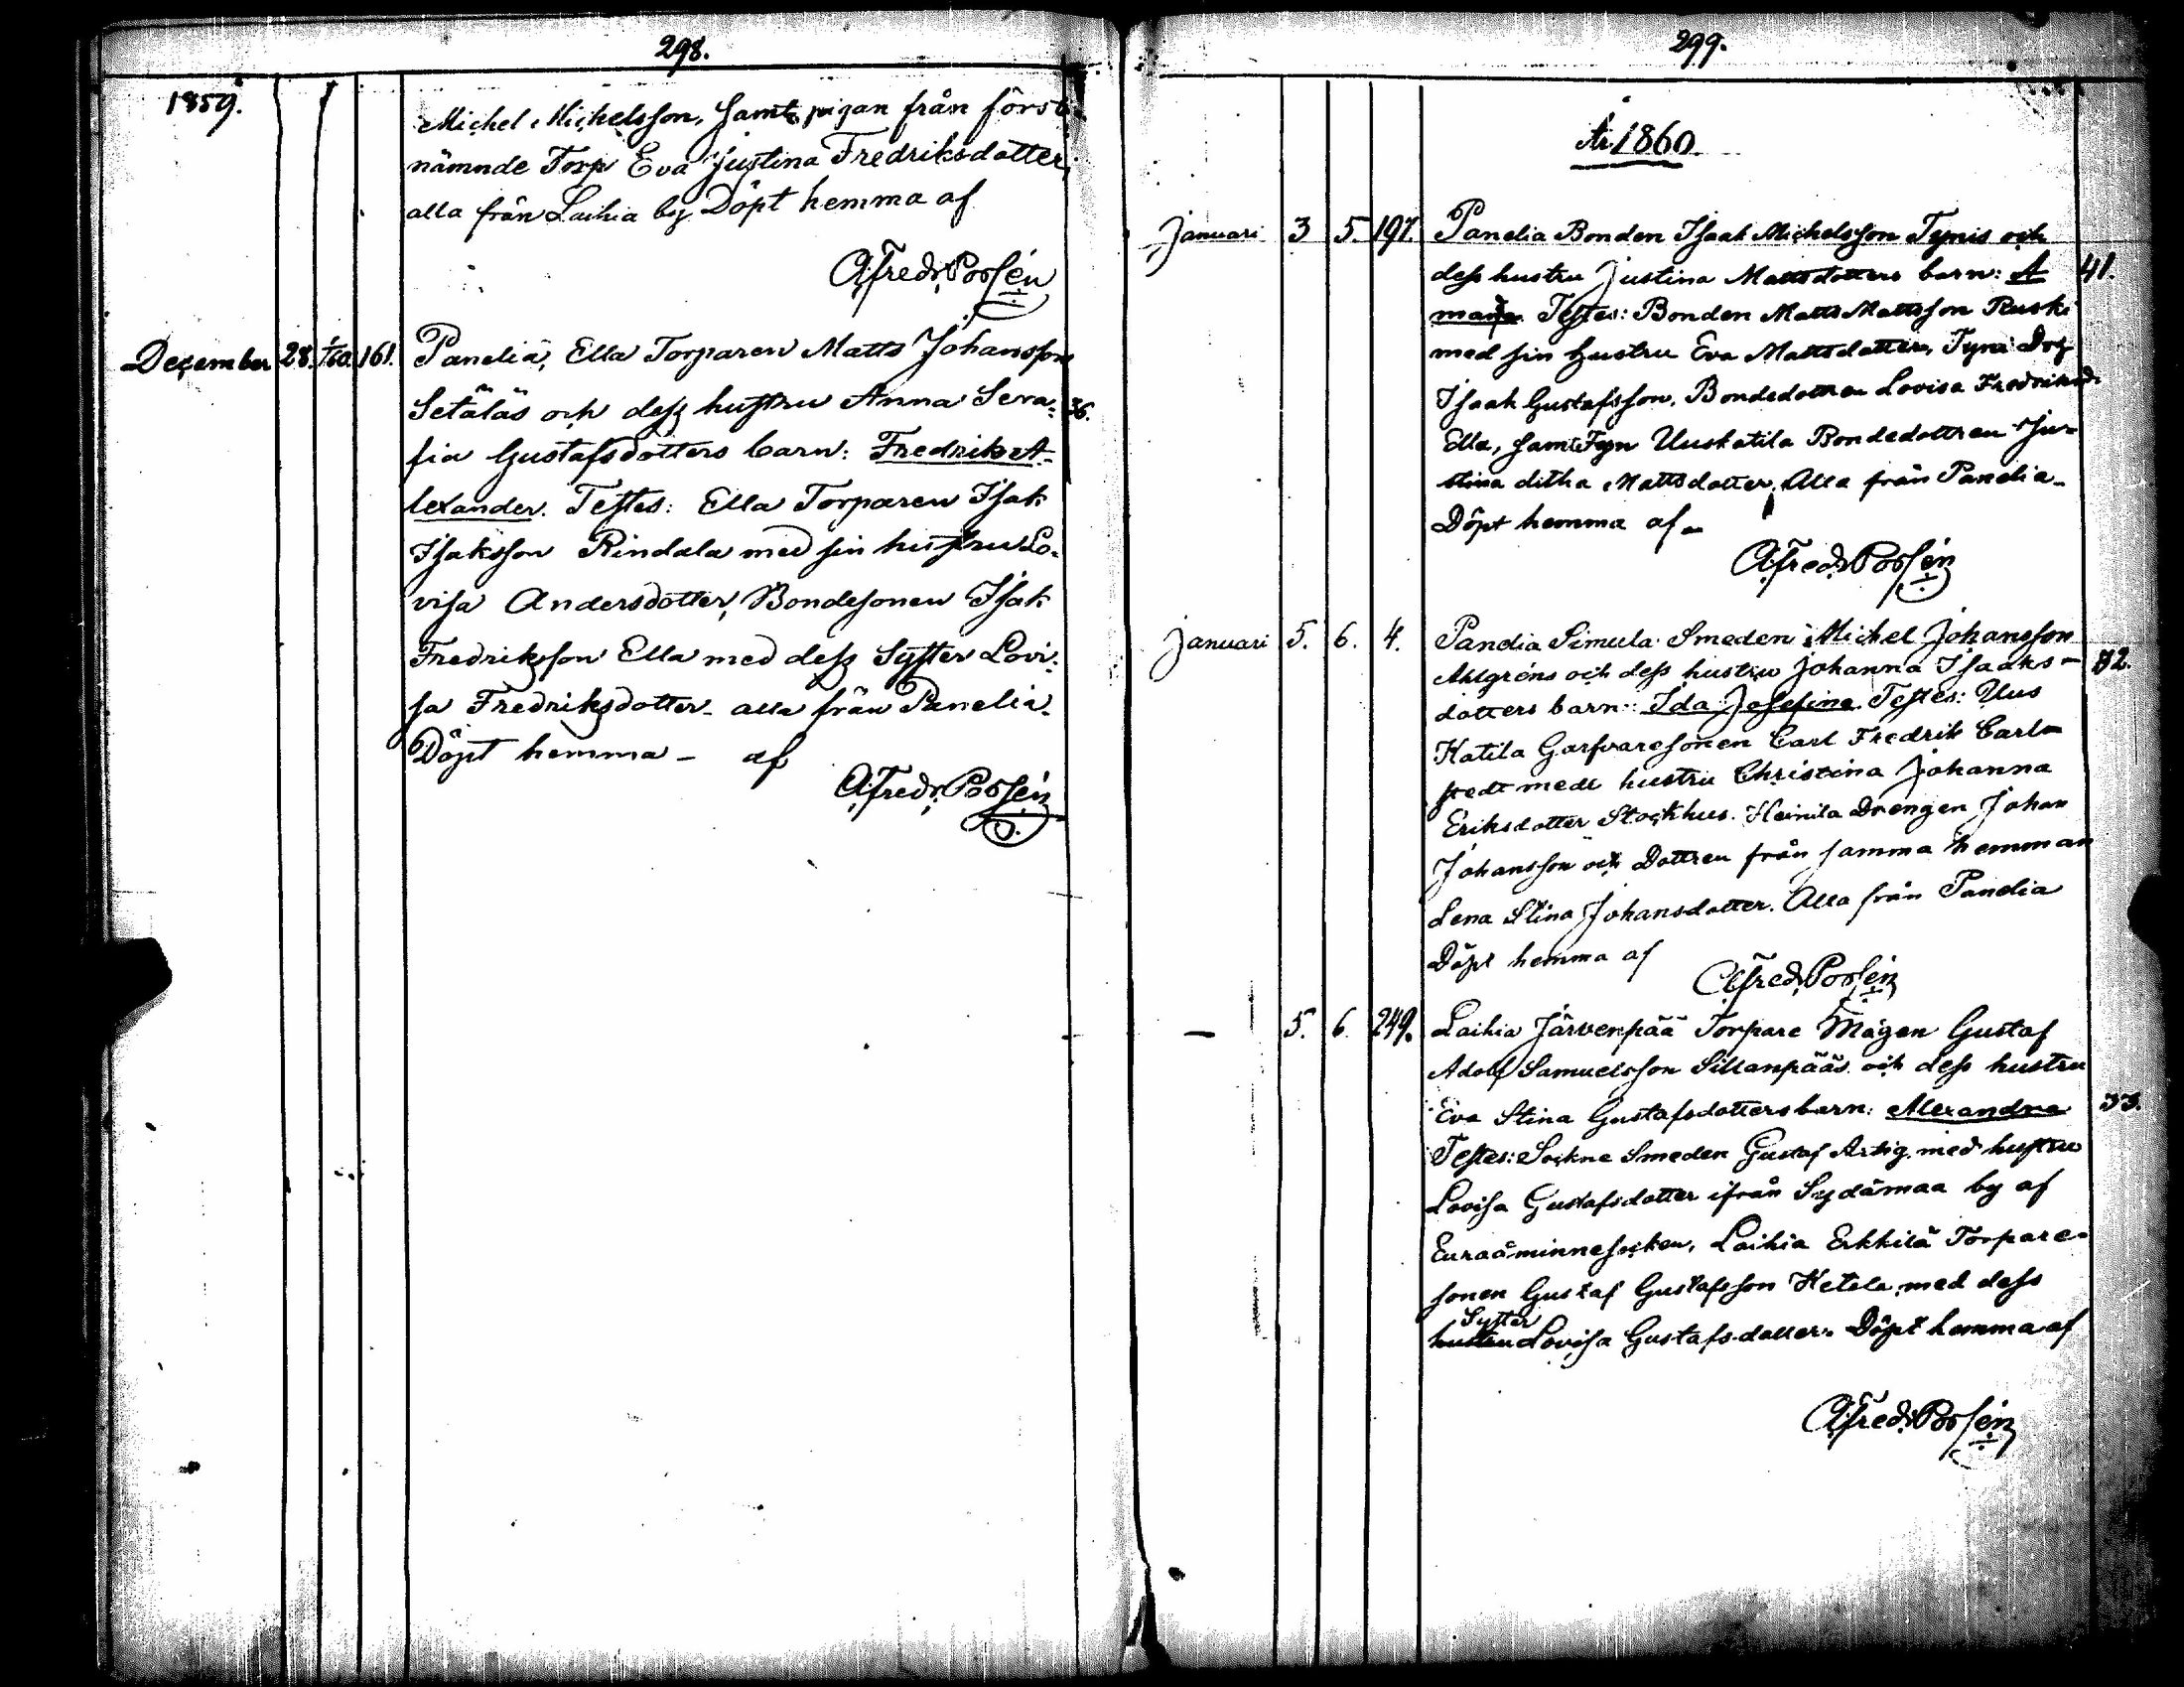 298.
1859.
Michel Michelsson, samt pigan från först
nämnde Torp Eva Justina Fredriksdotter,
alla från Laihia by Döpt hemma af
Alfred Posén
December 28. 1/60. 161. Panelia, Ella Torparen Matts Johansson
Setäläs och dess hustru Anna Sera- 36.
fia Gustafsdotters barn: Fredrik A-
lexander. Testes: Ella Torparen Isak
Isaksson Rindala med sin hustru Lo-
visa Andersdotter, Bondesonen Isak
Fredriksson Ella med dess Syster Lovi-
sa Fredriksdotter - alla från Panelia.
Döpt hemma - af
Alfred Posén
299.
År 1860.
Januari 3 5. 197. Panelia Bonden Isaak Michelsson Tynis och
dess hustru Justina Mattsdotters barn: A 41.
manda. Testes: Bonden Matts Mattsson Ruski
med sin hustru Eva Mattsdotter, Tyni Drg
Isaak Gustafsson, Bondedottren Lovisa Fredriksd.
Ella, samt Uuskatila Bondedottren Ju-
stina ditha Mattsdotter, Alla från Panelia -
Döpt hemma af -
Alfred Posén
Januari 5. 6. 4. Panelia Simula Smeden Michel Johansson
Ahlgréns och dess hustru Johanna Isaaks- 32.
dotters barn: Ida Josefina. Testes: Uus
Katila Garfvaresonen Carl Fredrik Carl-
stedt med hustru Christina Johanna
Eriksdotter Stockhus. Heinila Drengen Johan
Johansson och Dottren från samma hemman
Lena Stina Johansdotter. Alla från Panelia
Döpt hemma af
Alfred Posén
— 5. 6. 249. Laihia Järvenpää Torpare Mågen Gustaf
Adolf Samuelsson Sillanpääs och dess hustru
Eva Stina Gustafsdotters barn: Alexandra 33.
Testes: Sockne Smeden Gustaf Artig med hustru
Lovisa Gustafsdotter ifrån Sydämaa by af
Euraåminne socken, Laihia Erkkilä Torpare-
sonen Gustaf Gustafsson Ketela med dess
Syster
hustru Lovisa Gustafsdotter. Döpt hemma af
Alfred Posén